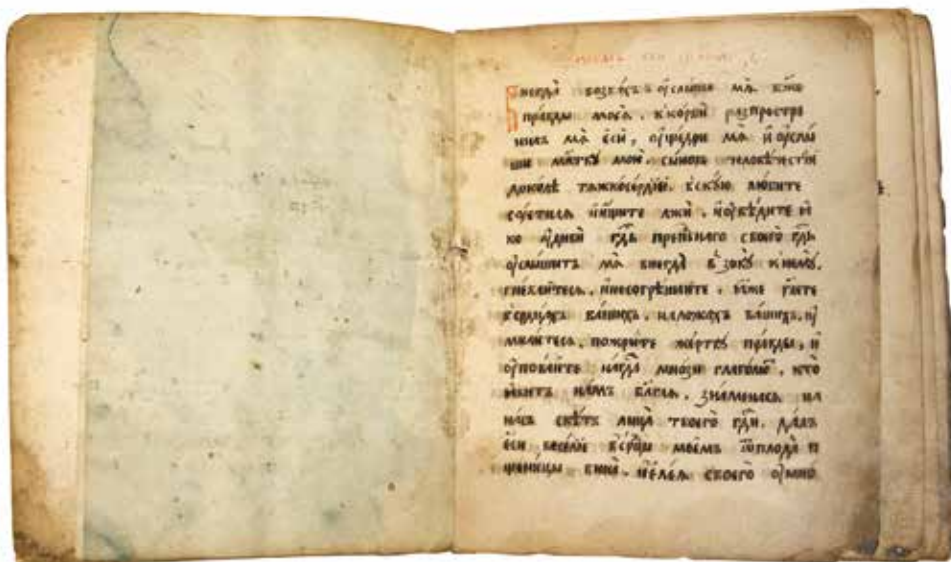 внегда воззвах ъ оуслыша мѧ бж҃е
правды моеѧ, в скорби распростра
нилъ мѧ еси, оущедри мѧ и оуслы
ши мл҃тву мою. сынове человѣчестїи
доколѣ тѧжкосердїи. вскую любите
суетнаѧ и ищете лжи, и оувѣдите ѩ
ко оудиви гд҃ь прп҃бнаго своего гд҃ь
оуслышитъ мѧ внегда взову к нему.
гнѣваитесѧ, и несогрѣшаите, ѩже гл҃ете
в сердцахъ вашихъ, на ложахъ вашихъ, оу
милитесѧ, пожрите жертву правды, и
оуповаите на гд҃а мнози глаголют, кто
ѩвитъ намъ бл҃гаѧ, знаменасѧ на
насъ свѣтъ лица твоего гд҃и. далъ
еси веселїе в ср҃цы моемъ ѿ плода п
шеницы вина, и елеѧ своего оумно